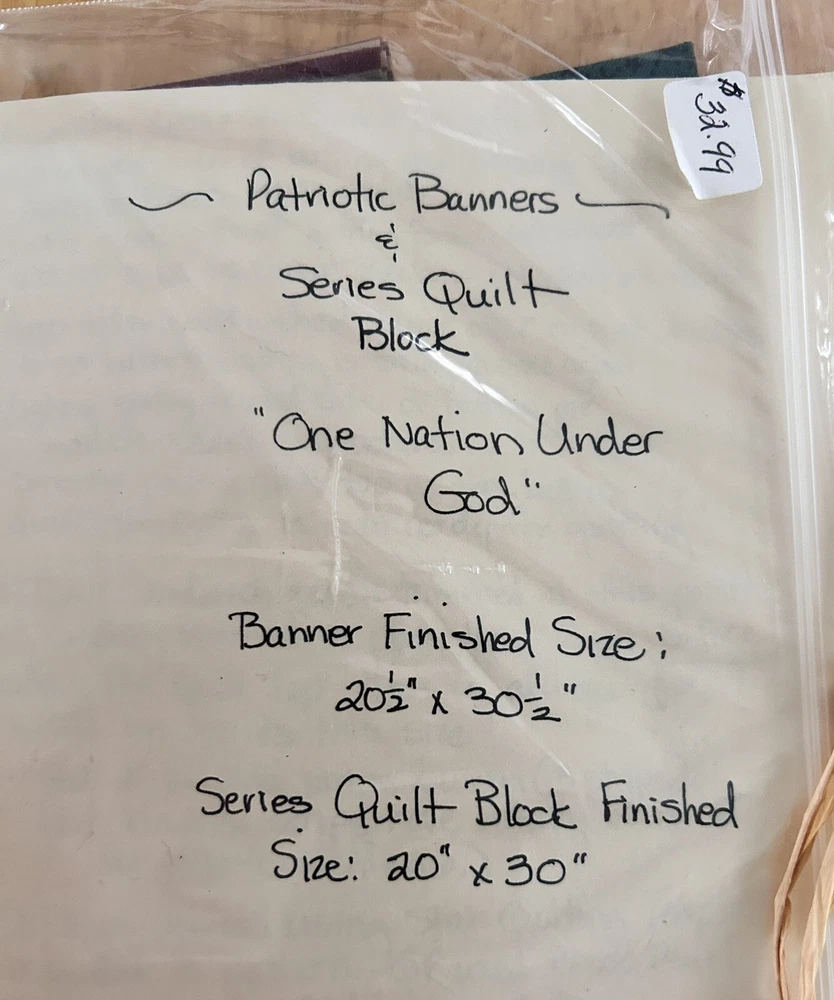 $32.99
Patriotic Banners
&
Series Quilt
Block
"One Nation Under
God"
Banner Finished Size:
20½" x 30½"
Series Quilt Block Finished
Size: 20" x 30"